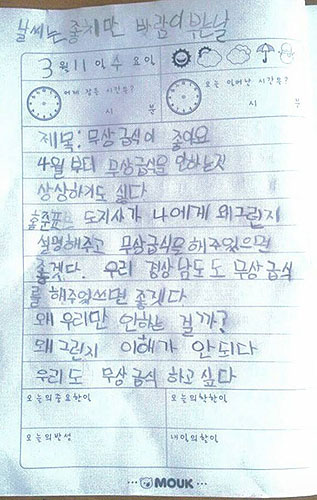 날씨는 좋치만 바람이 부는날
3월 11일 수 요일
어제 잠든 시간은?
오늘 일어난 시간은?
시 분
시 분
제목: 무상급식이 좋아요
4월 부터 무상급식을 안하는지
상상하기도 싫다
홍준표는 도지사가 나에게 왜그런지
설명해주고 무상급식을 해주었으면
좋겠다. 우리 경상남도도 무상급식
를 해주었쓰면 좋겠다
왜 우리만 안하는 걸까?
왜 그런지 이해가 안되다
우리도 무상급식 하고 싶다
오늘의중요한일
오늘의착한일
오늘의반성
내일의할일
MOUK